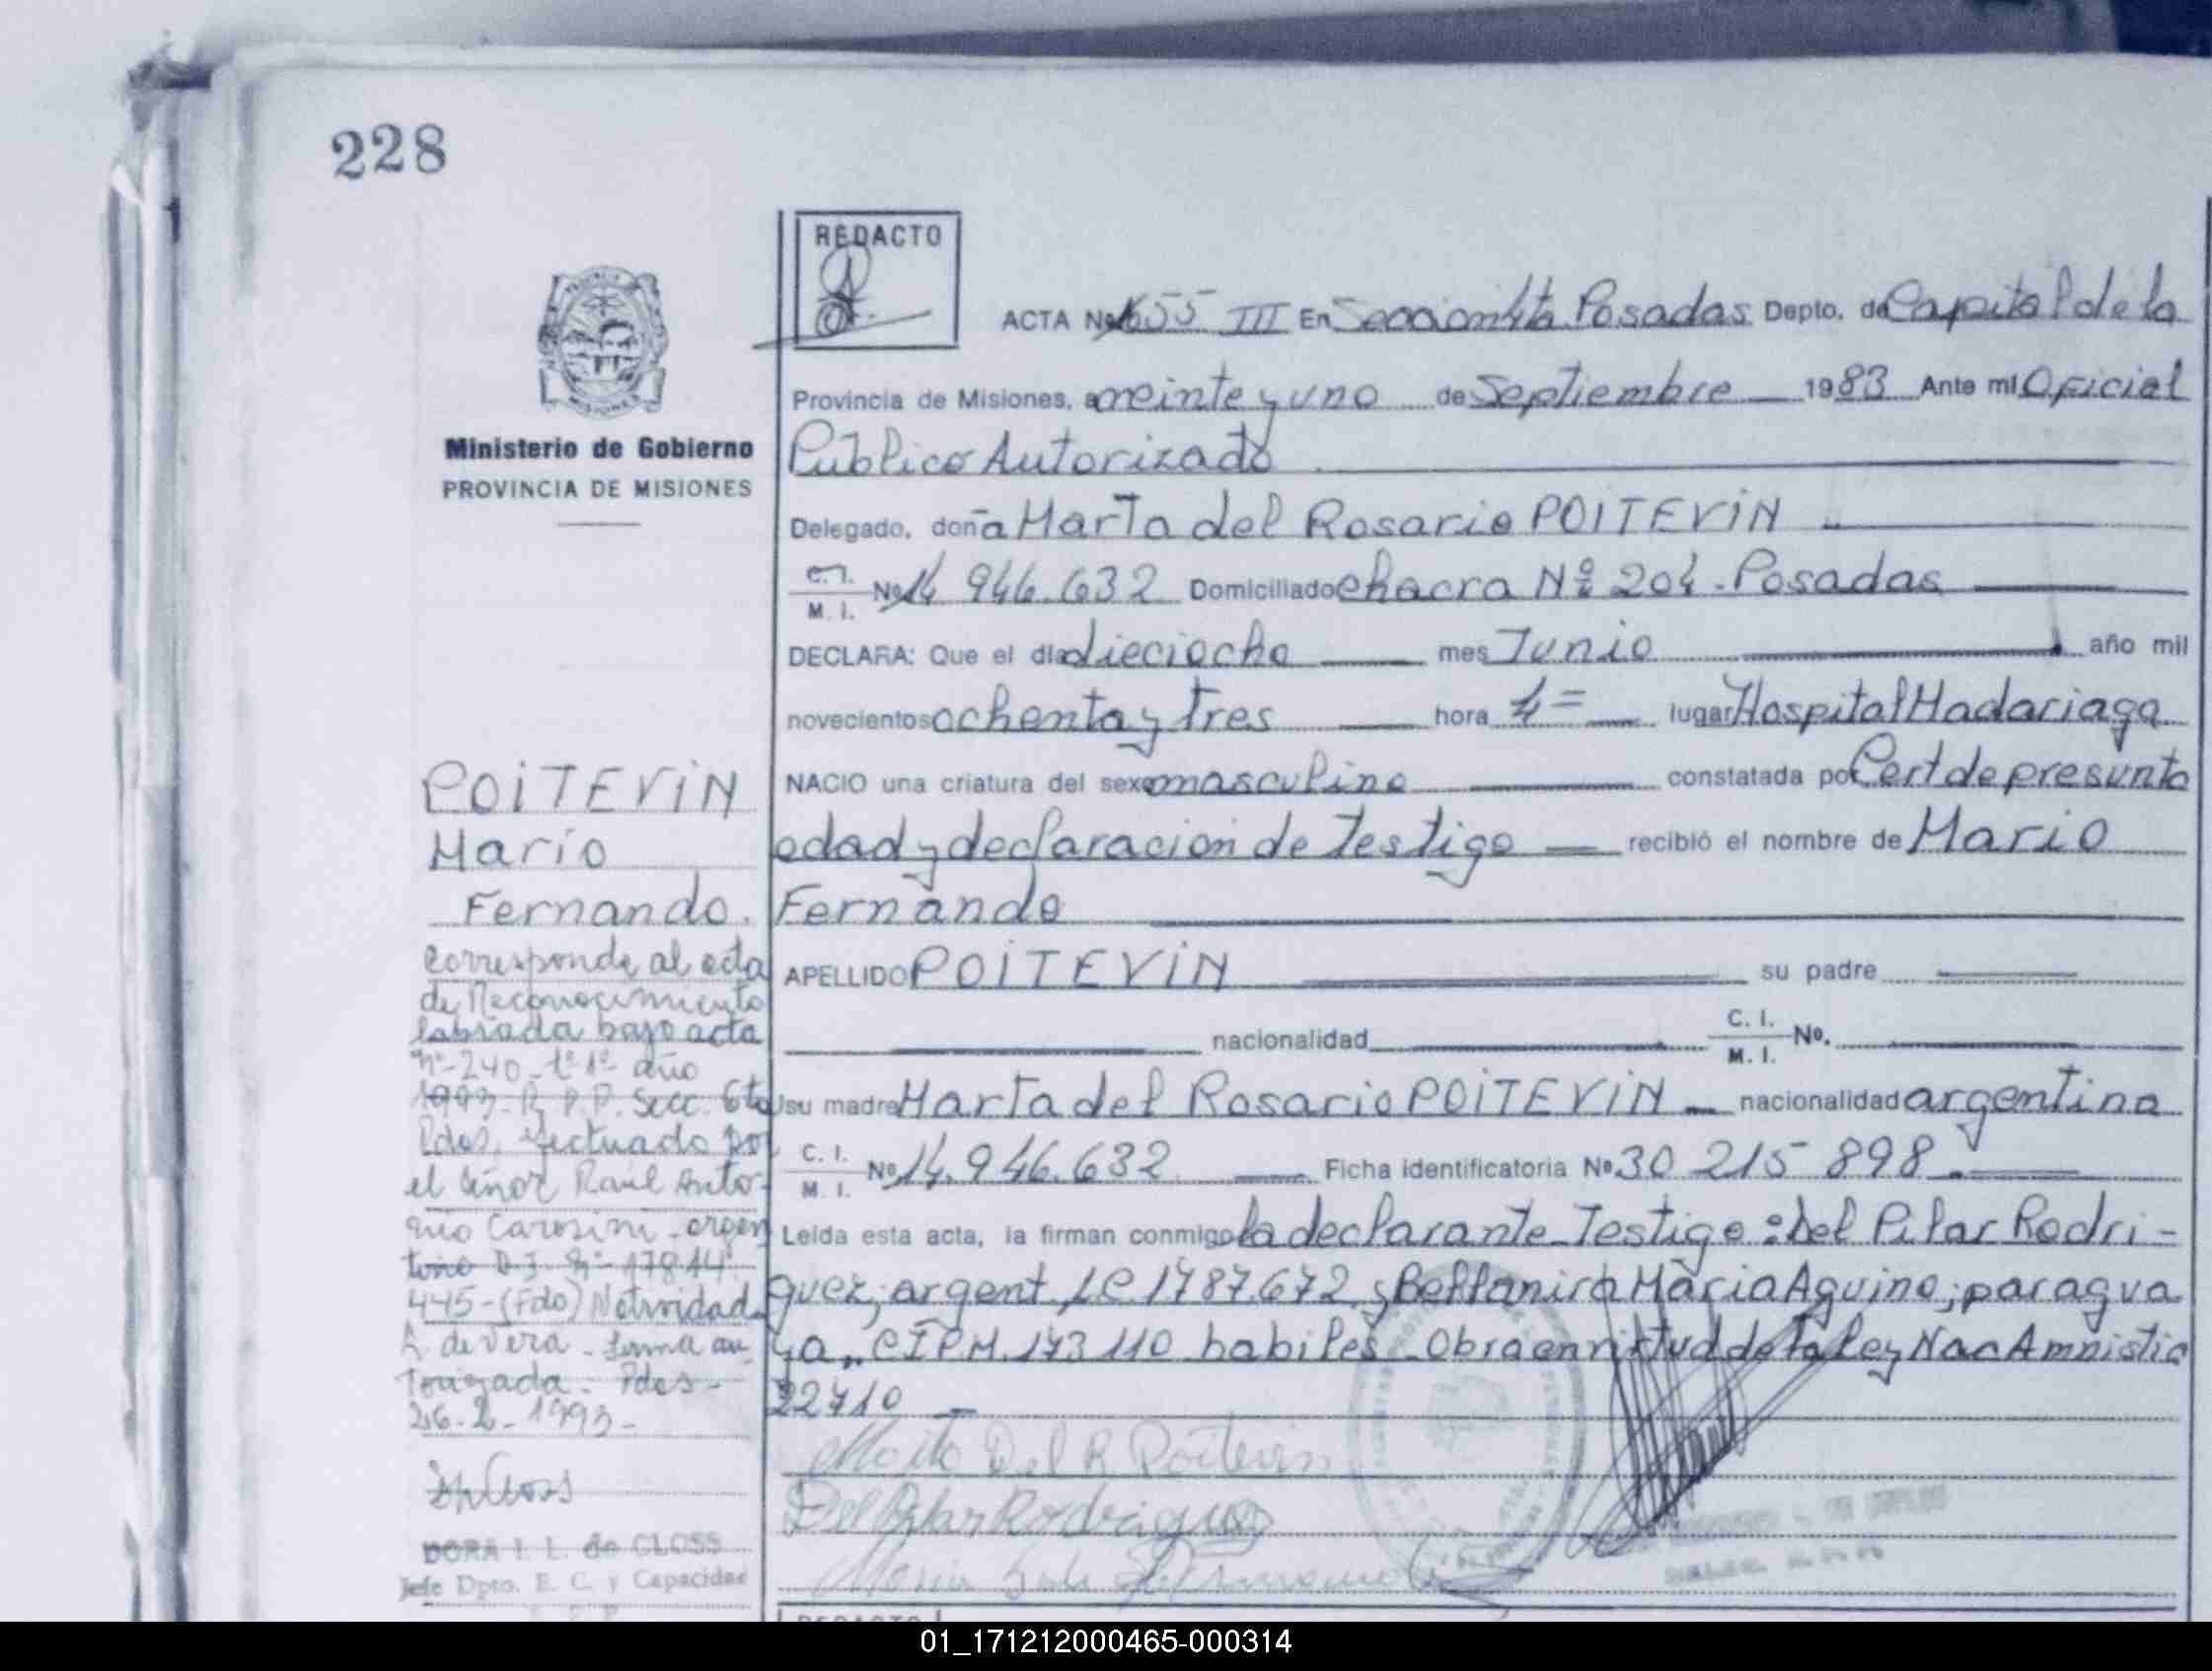 228
REDACTO
ACTA No 1655 III En Sección 6ta Posadas Depto. de Capital de la
Provincia de Misiones, a veinte y uno de Septiembre 1983 Ante mí Oficial
Ministerio de Gobierno
PROVINCIA DE MISIONES
Público Autorizado
Delegado, doña Marta del Rosario POITEVIN
C.I. M. I. No 14 946.632 Domiciliado chacra Nº 204 - Posadas
DECLARA: Que el día dieciocho mes Junio año mil
novecientos ochenta y tres hora 4= lugar Hospital Madariaga
NACIO una criatura del sexo masculino constatada por Cert de presunta
edad y declaración de testigo recibió el nombre de Mario
Fernando
APELLIDO POITEVIN su padre
nacionalidad C. I. M. I. No.
su madre Marta del Rosario POITEVIN nacionalidad argentina
C. I. M. I. No 14.946.632 Ficha identificatoria No 30 215 898
Leída esta acta, la firman conmigo la declarante Testigo: Del Pilar Rodri-
guez, argent. LC 1787.672 y María Aguino, paragua
ya, CIPM. 173 110 habiles - Obra en virtud de la Ley Nac Amnistia
22710
Marta Del R Poitevin
Del Pilar Rodriguez
POITEVIN
Mario
Fernando.
Corresponde al acta
de Reconocimiento
labrada bajo acta
nº 240 - tº 1º año
1993 - R. P. P. Secc. 6ta
Pdas. efectuado por
el señor Raúl Anto-
nio Carosini - argen
tino D.I. Nº 17814
445 - (Fdo) Natividad
R. de Vera - firma au
torizada - Pdas -
26-2-1993 -
DORA I. L. de CLOSS
Jefe Dpto. E. C. y Capacidad
REDACTO
01_171212000465-000314